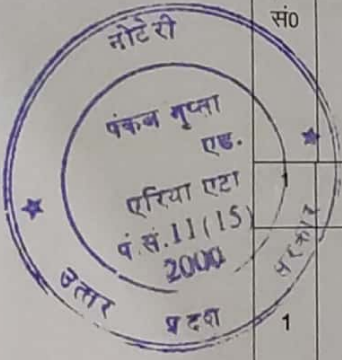 सं0
नोटेरी
पंकज गुप्ता
एड.
एरिया एटा
पं.सं.11(15)
2000
उत्तर प्रदेश सरकार
1
1